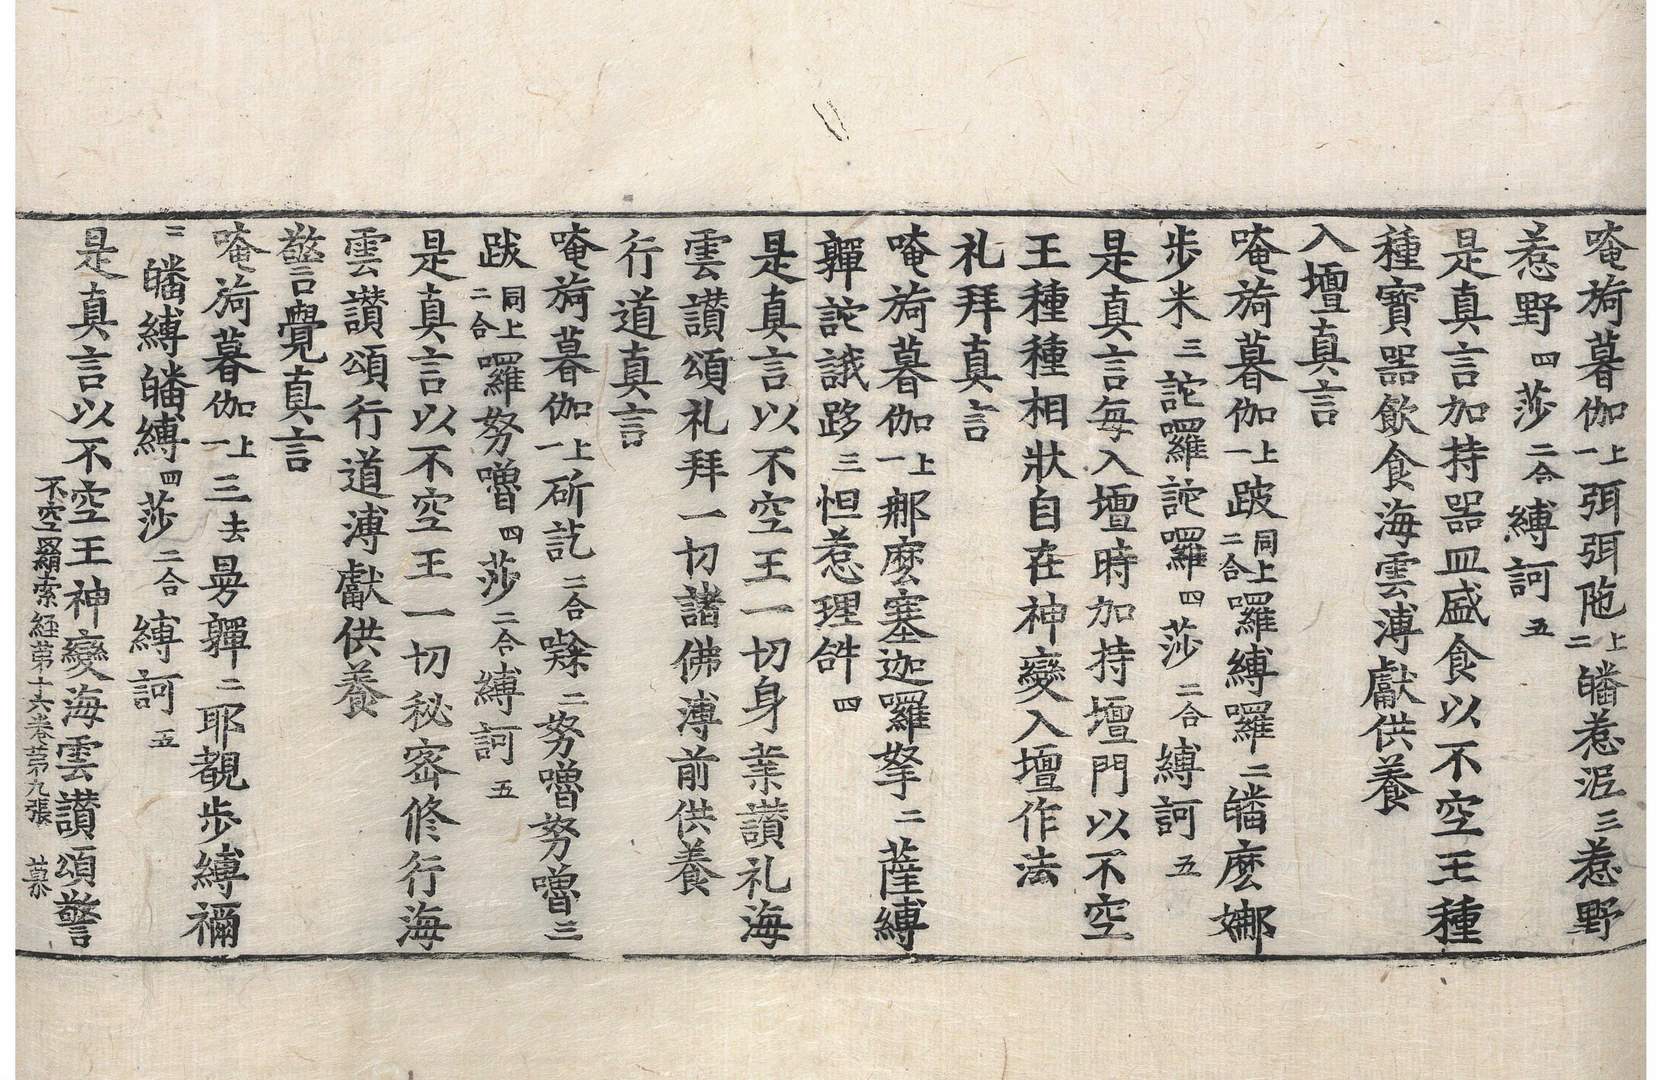 唵旖暮伽上一弭弭陁上二皤惹泥三惹野
惹野四莎二合縛訶五
是真言加持器皿盛食以不空王種
種寳器飲食海雲溥獻供養
入壇真言
唵旖暮伽上一跛同上二合囉縛囉二皤麽娜
步米三詑囉詑囉四莎二合縛訶五
是真言每入壇時加持壇門以不空
王種種相狀自在神變入壇作法
礼拜真言
唵旖暮伽上一娜麽塞迦囉拏二薩縛
軃詑誐跢三怛惹理𤙖四
是真言以不空王一切身業讃礼海
雲讃頌礼拜一切諸佛溥前供養
行道真言
唵旖暮伽上一斫訖二合𡃤二努嚕努嚕三
跛同上二合囉努嚕四莎二合縛訶五
是真言以不空王一切秘密修行海
雲讃頌行道溥獻供養
警覺真言
唵旖暮伽上一三去曼軃二耶覩步縛禰
二皤縛皤縛四莎二合縛訶五
是真言以不空王神變海雲讃頌警
不空羂索経苐十六卷苐九張 慕